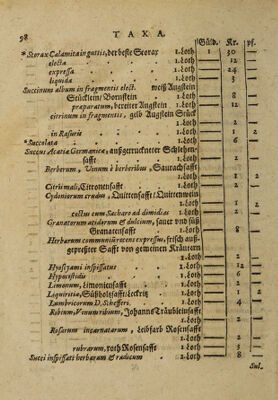 98 TAXA.
Güld. Kr. pf.
* Storax Calamita in guttis, der beste Storax 1. Loth 1 30 —
electa. 1. Loth — 12 —
expressa. 1. Loth — 24 —
liquida 1. Loth — 3 —
Succinum album in fragmentis elect. weiß Augstein
Stücklein/Bornstein 1. Loth — 8 —
præparatum, bereiter Augstein 1. Loth — 12 —
citrinum in fragmentis, gelb Augstein Stück
1. Loth — 1 —
in Rasuris 1. Loth — 1 2
* Succolata 1. Loth — 6
Succus Acatiæ Germanicæ, außgetruckneter Schlehen-
safft 1. Loth — 2 —
Berberum, Vinum è berberibus, Saurachsafft
1. Loth — 1
Citri mali, Citronensafft 1. Loth — 2 —
Cydoniorum crudus, Quittensafft: Quittenwein
1. Loth — 1
coctus cum Saccharo ad dimidias 1. Loth — 2 —
Granatorum acidorum & dulcium, saurer und süß
Granatensafft 1. Loth — 8 —
Herbarum communium recens expressus, frisch auß-
gepreßter Safft von gemeinen Kräutern
1. Loth — 1
Hyosciami inspissatus 1. Loth — 12
Hypocistidis 1. Loth
Limonum, Limoniensafft 1. Loth — 2
Liquiritiæ, Süßholtzsafft: Leckritz 1. Loth — 2
Lumbricorum D. Schefferi. 1. Loth — 4
Ribium, Vinum ribium, Johanns Träublein safft
1. Loth — 2
Rosarum incarnatarum. Leibfarb Rosensafft
1. Loth — 2
rubrarum, roth Rosensafft 1. Loth — 3
Succi inspissati herbarum & radicum 1. Loth — 8
Sul.